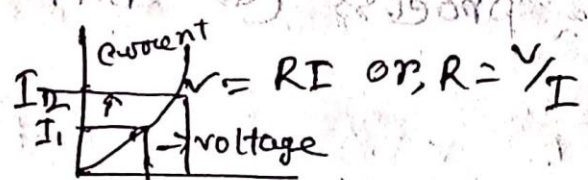 current
I₂ V = RI or, R = V/I
I₁ → voltage